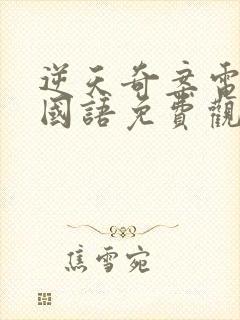 逆天奇案電
國語免費觀
焦雪宛